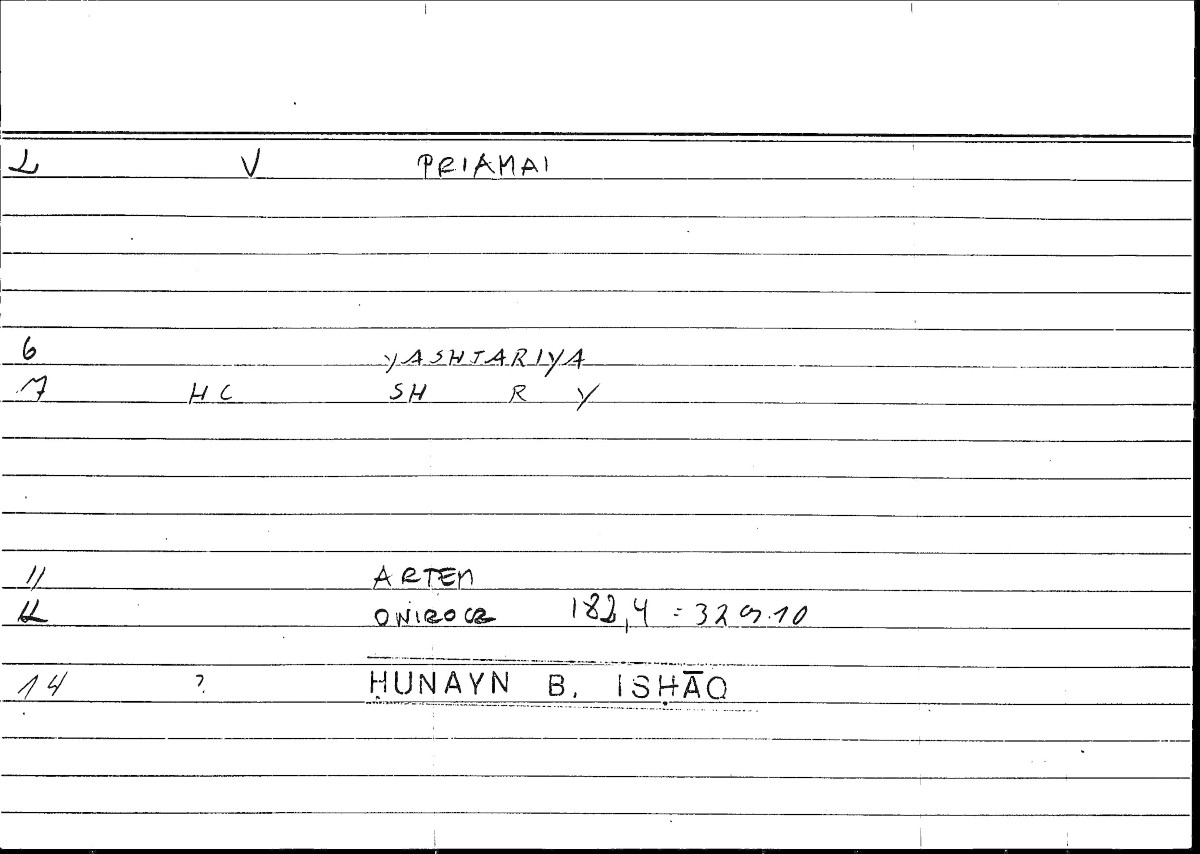 2 V PRIAMAI
6 YASHTARIYA
7 HC SH R Y
11 ARTEM
12 ONIROCR 182,4 = 329.10
14 ? ḤUNAYN B. ISḤĀQ